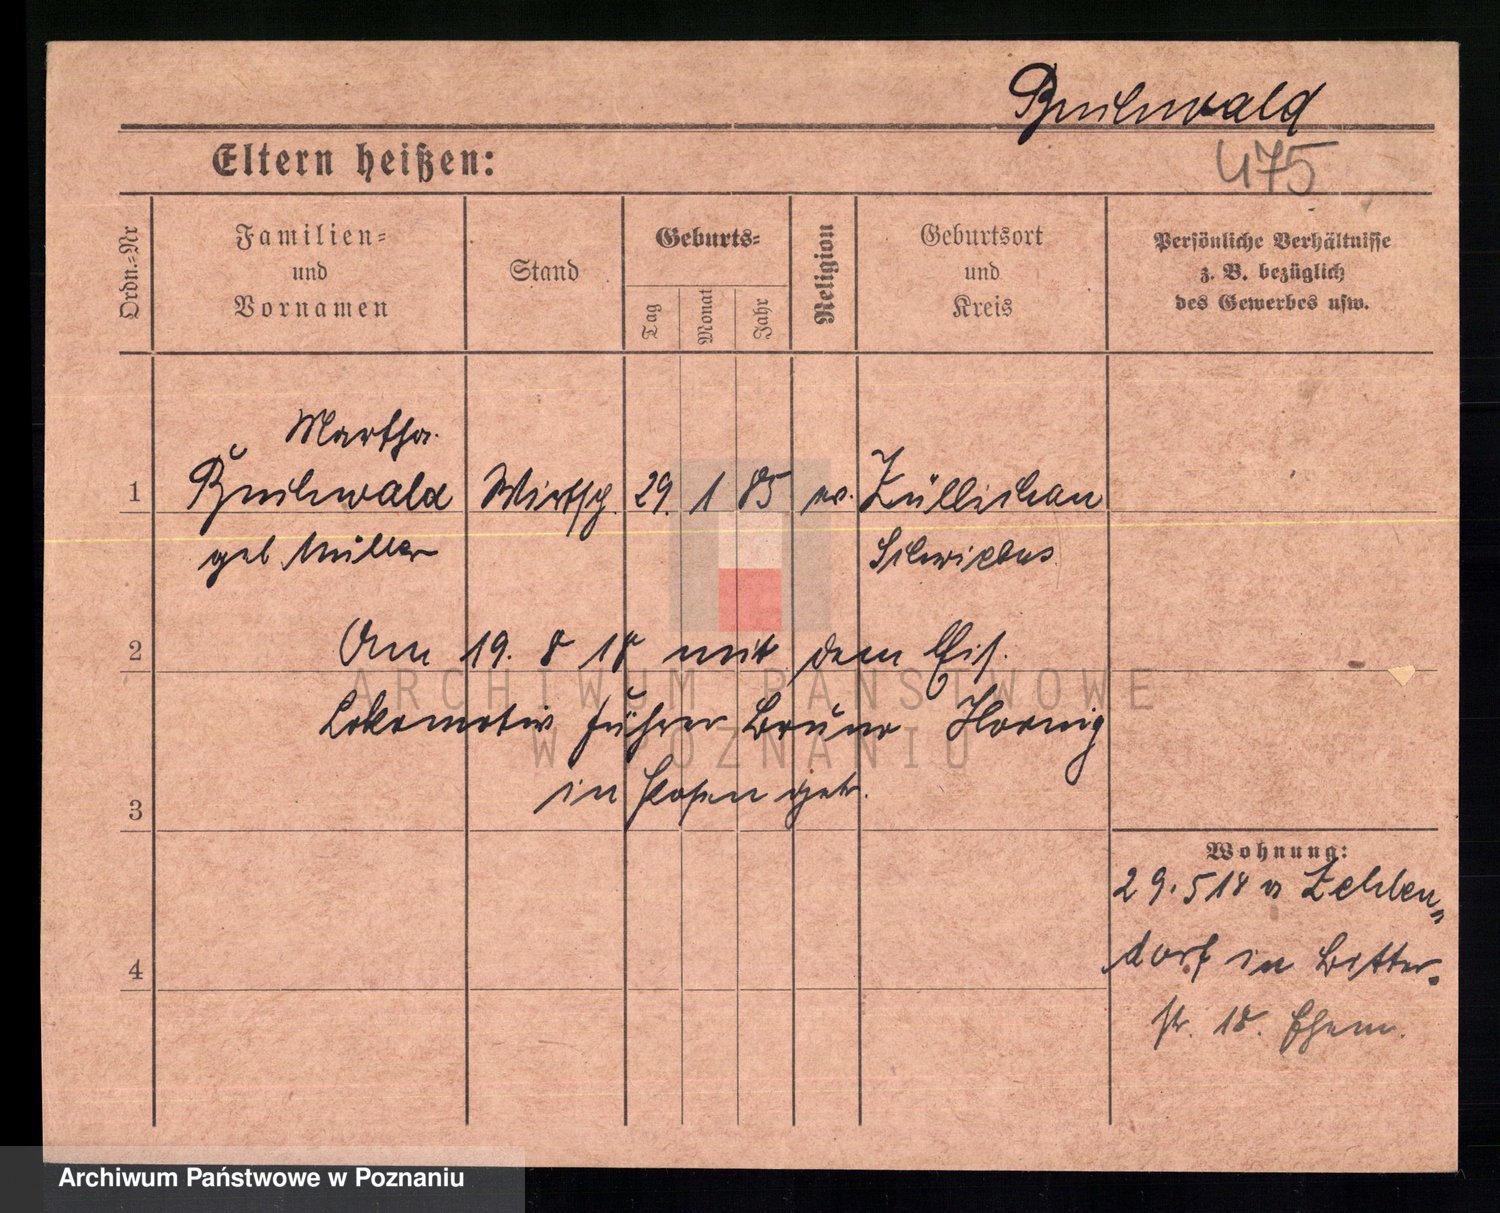 Buchwald
Eltern heißen:
475
Ordn.-Nr
Familien-
und
Vornamen
Stand
Geburts-
Tag
Monat
Jahr
Religion
Geburtsort
und
Kreis
Persönliche Verhältnisse
z. B. bezüglich
des Gewerbes usw.
Martha
1 Buchwald Wirtsch. 29. 1 85 ev. Züllichau
geb Müller Schwiebus
2 Am 19. 8 18 mit dem Eis.
Lokomotiv führer Bruno Hornig
3 in Posen getr.
Wohnung:
29.5 18 v Zehlen-
dorf in Bitter-
4
str. 18.
ARCHIWUM PAŃSTWOWE
W POZNANIU
Archiwum Państwowe w Poznaniu